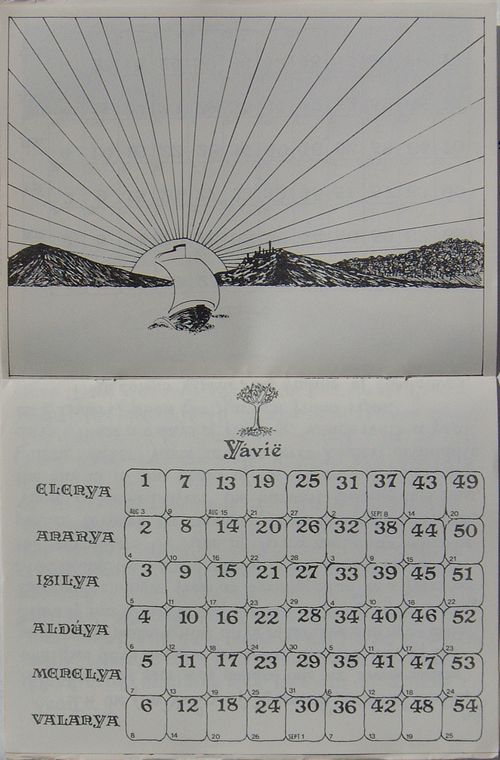 Yávië
ELENYA 1 7 13 19 25 31 37 43 49
AUG 3 9 AUG 15 21 27 2 SEPT 8 14 20
ANARYA 2 8 14 20 26 32 38 44 50
4 10 16 22 28 3 9 15 21
ISILYA 3 9 15 21 27 33 39 45 51
5 11 17 23 29 4 10 16 22
ALDÚYA 4 10 16 22 28 34 40 46 52
6 12 18 24 30 5 11 17 23
MENELYA 5 11 17 23 29 35 41 47 53
7 13 19 25 31 6 12 18 24
VALANYA 6 12 18 24 30 36 42 48 54
8 14 20 26 SEPT 1 7 13 19 25